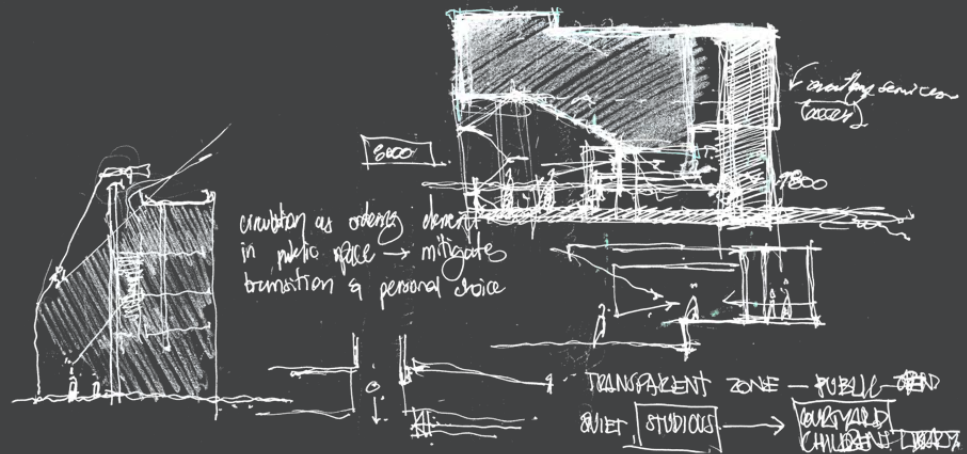 services
(access)
3000
7800
circulation as ordering element
in public space → mitigates
transition & personal choice
TRANSPARENT ZONE — PUBLIC —
QUIET, STUDIOUS → COURTYARD
CHILDREN'S LIBRARY